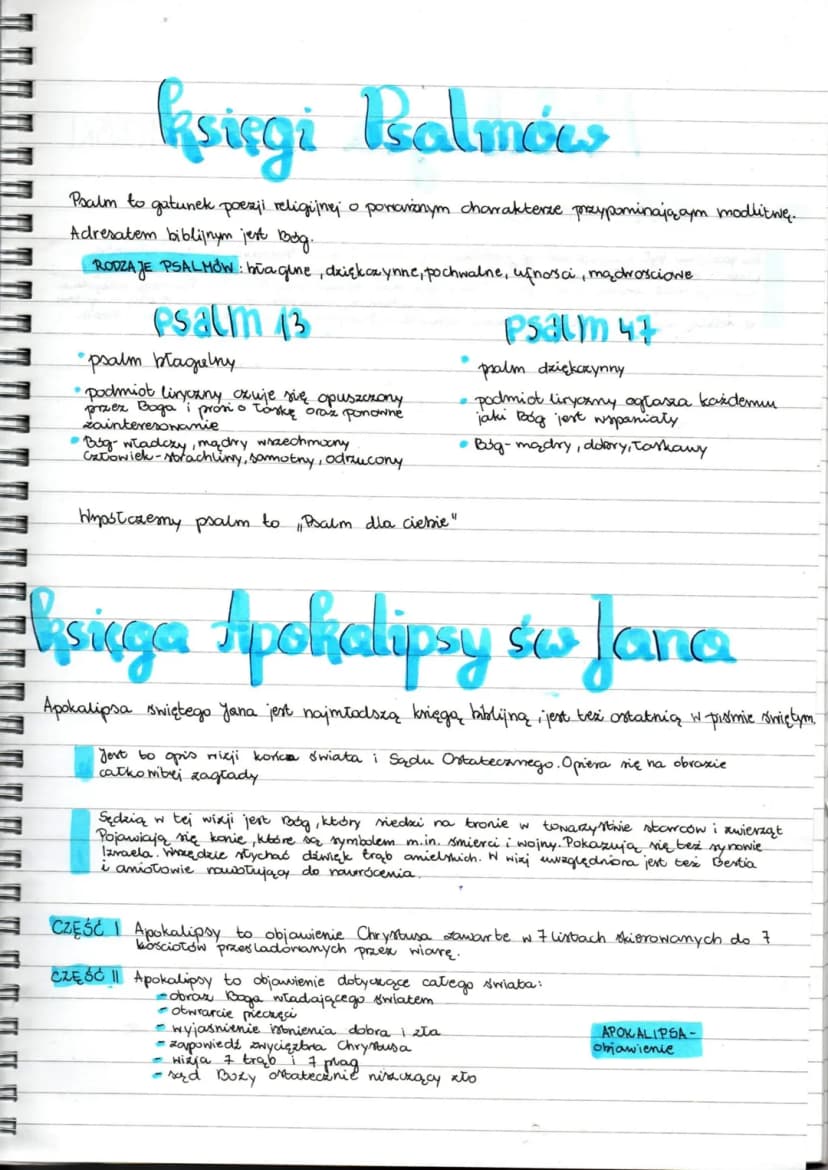 Księgi Psalmów
Psalm to gatunek poezji religijnej o poważnym charakterze przypominającym modlitwę.
Adresatem biblijnym jest Bóg.
RODZAJE PSALMÓW: błagalne, dziękczynne, pochwalne, ufności, mądrościowe
psalm 13
• psalm błagalny
• podmiot liryczny czuje się opuszczony
przez Boga i prosi o łaskę oraz ponowne
zainteresowanie
• Bóg - władczy, mądry wszechmocny
Człowiek - strachliwy, samotny, odrzucony
psalm 47
• psalm dziękczynny
• podmiot liryczny ogłasza każdemu
jaki Bóg jest wspaniały
• Bóg - mądry, dobry, łaskawy
Współczesny psalm to „Psalm dla ciebie"
księga Apokalipsy św Jana
Apokalipsa świętego Jana jest najmłodszą księgą biblijną, jest też ostatnią w piśmie świętym.
Jest to opis wizji końca świata i Sądu Ostatecznego. Opiera się na obrazie
całkowitej zagłady
Sędzią w tej wizji jest Bóg, który siedzi na tronie w towarzystwie starców i zwierząt
Pojawiają się konie, które są symbolem m.in. śmierci i wojny. Pokazują się też synowie
Izraela. Wszędzie słychać dźwięk trąb anielskich. W wizji uwzględniona jest też Bestia
i aniołowie nawołujący do nawrócenia.
CZĘŚĆ I Apokalipsy to objawienie Chrystusa zawarte w 7 listach skierowanych do 7
kościołów prześladowanych przez wiarę.
CZĘŚĆ II Apokalipsy to objawienie dotyczące całego świata:
- obraz Boga władającego światem
- otwarcie pieczęci
- wyjaśnienie istnienia dobra i zła
- zapowiedź zwycięstwa Chrystusa
- wizja 7 trąb i 7 plag
- sąd Boży ostatecznie niszczący zło
APOKALIPSA -
objawienie